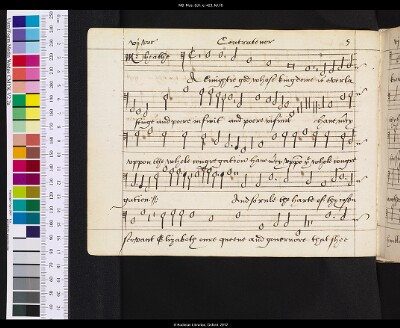 MS. Mus. Sch. e. 420, fol. 7r
Contratenor 5
Mr heathe
Almightie god whose kingdome is everla
stinge and power infinit and power infinit have mercy
uppon the whole congregation have mercy uppon the whole congre
gation And so rule the harte of thy chosen
servant Elizabeth our quene and governor that shee
© Bodleian Libraries, Oxford, 2012